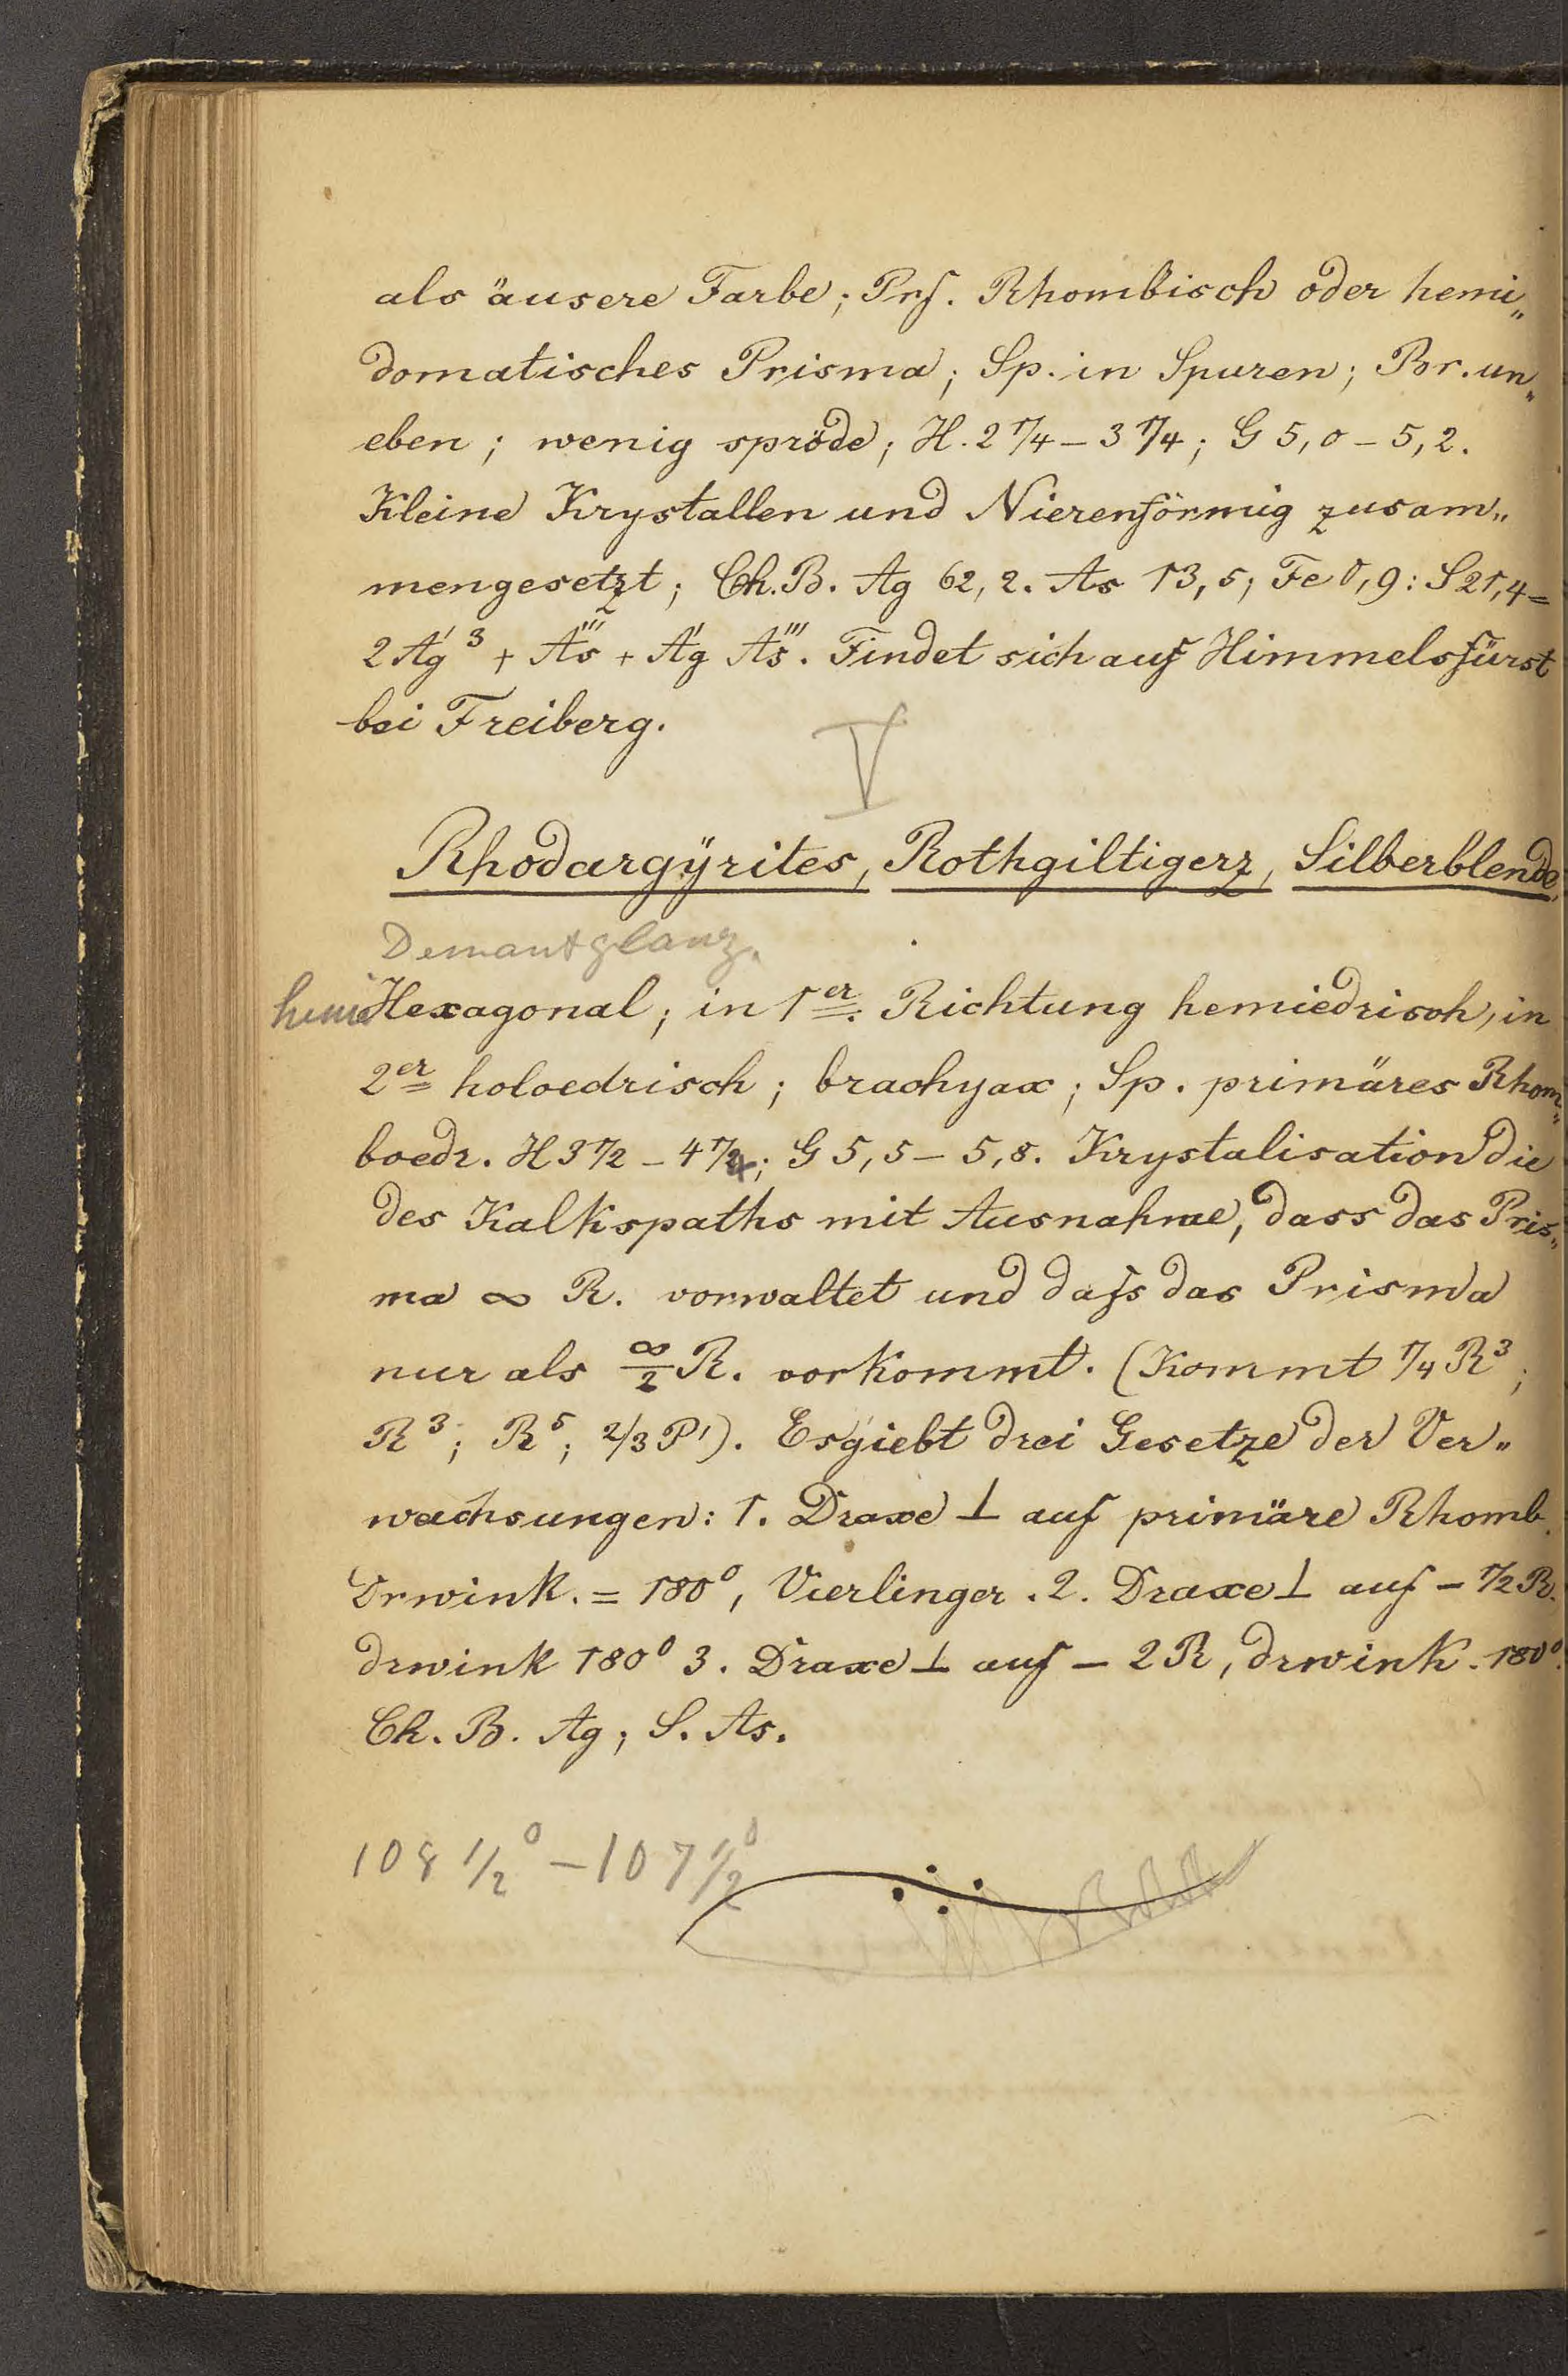 als äusere Farbe; Prf. Rhombisch oder hemi„
domatisches Prisma; Sp. in Spuren; Br. un„
eben; wenig spröde; H. 2 1/4 – 3 1/4; G 5,0 – 5,2.
Kleine Krystallen und Nierenförmig zusam„
mengesetzt; Ch. B. Ag 62,2. As 13,5; Fe 0,9: S 21,4 =
2 A'g³ + A'''s + A'g A'''s. Findet sich auf Himmelsfürst
bei Freiberg.
V
Rhodargÿrites, Rothgiltigerz, Silberblende,
Demantglanz.
hemi Hexagonal; in 1er. Richtung hemiedrisch, in
2er holoedrisch; brachyax; Sp. primäres Rhom„
boedr. H 3 1/2 – 4 1/4; G 5,5 – 5,8. Krystalisation die
des Kalkspaths mit Ausnahme, dass das Pris„
ma ∞ R. vorwaltet und dafs das Prisma
nur als ∞/2 R. vorkommt. (Kommt 1/4 R³;
R³; R⁵; 2/3 P'). Es giebt drei Gesetze der Ver„
wachsungen: 1. Draxe ⊥ auf primäre Rhomb.
Drwink. = 180⁰, Vierlinger. 2. Draxe ⊥ auf – 1/2 R.
drwink 180⁰ 3. Draxe ⊥ auf – 2 R, drwink. 180⁰.
Ch. B. Ag; S. As.
108 1/2⁰ – 107 1/2⁰